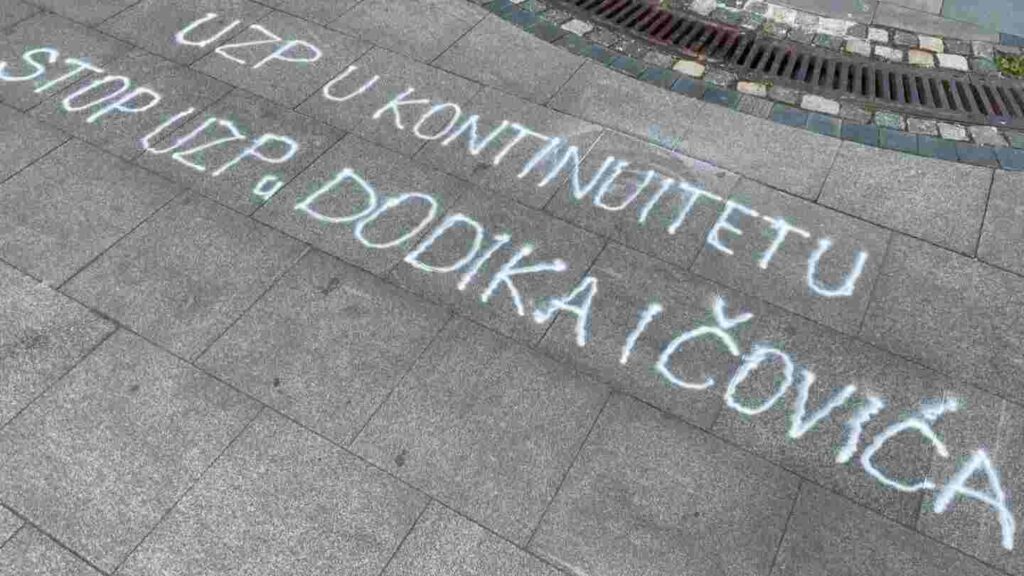 UZP U KONTINUITETU
STOP UZP. DODIKA I ČOVIĆA